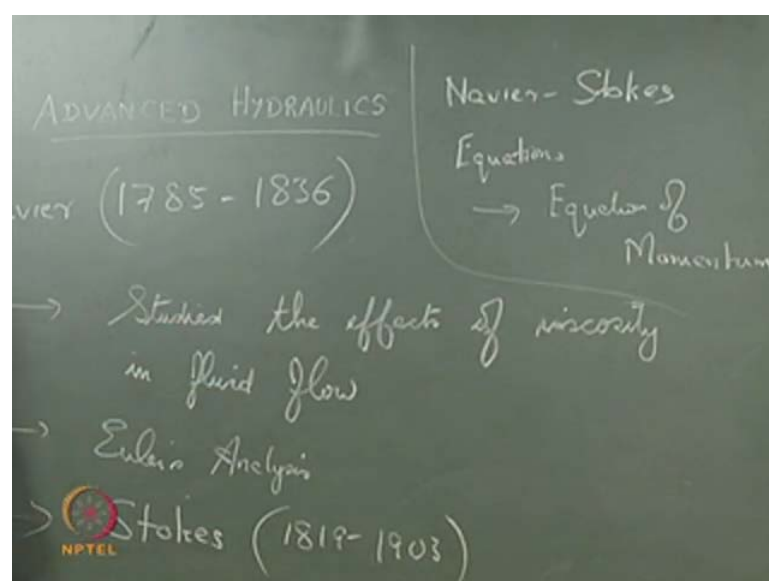 ADVANCED HYDRAULICS
vier (1785 - 1836)
→ Studied the effects of viscosity
in fluid flow
→ Euler's Analysis
→ Stokes (1819 - 1903)
NPTEL
Navier - Stokes
Equations
→ Equation of
Momentum